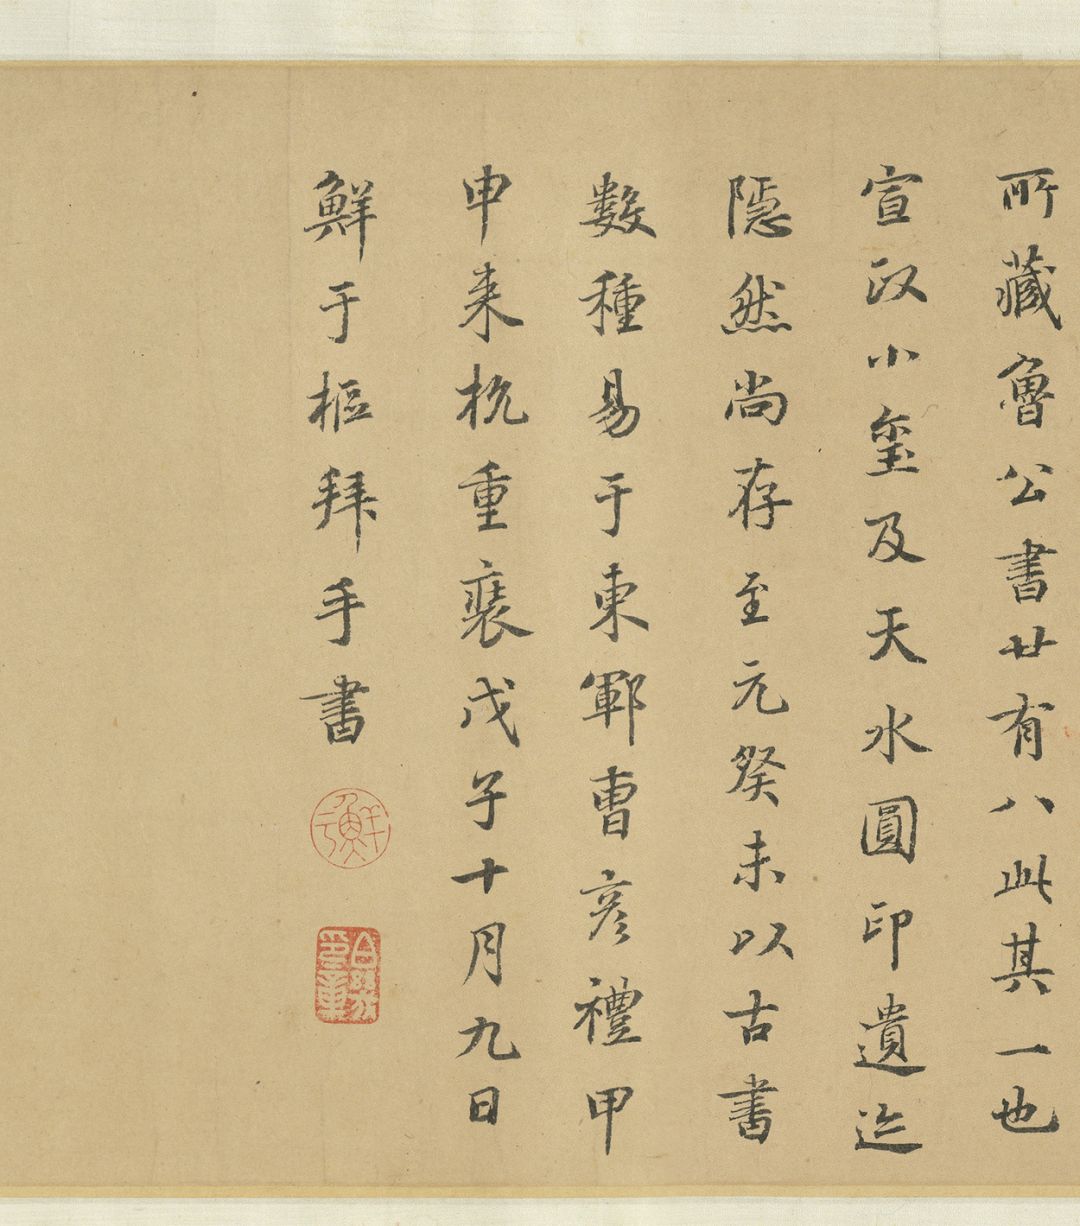 所藏魯公書廿有八此其一也
宣政小璽及天水圓印遺迹
隱然尚存至元癸未以古書
數種易于東鄆曹彦禮甲
申来杭重裝戊子十月九日
鮮于樞拜手書